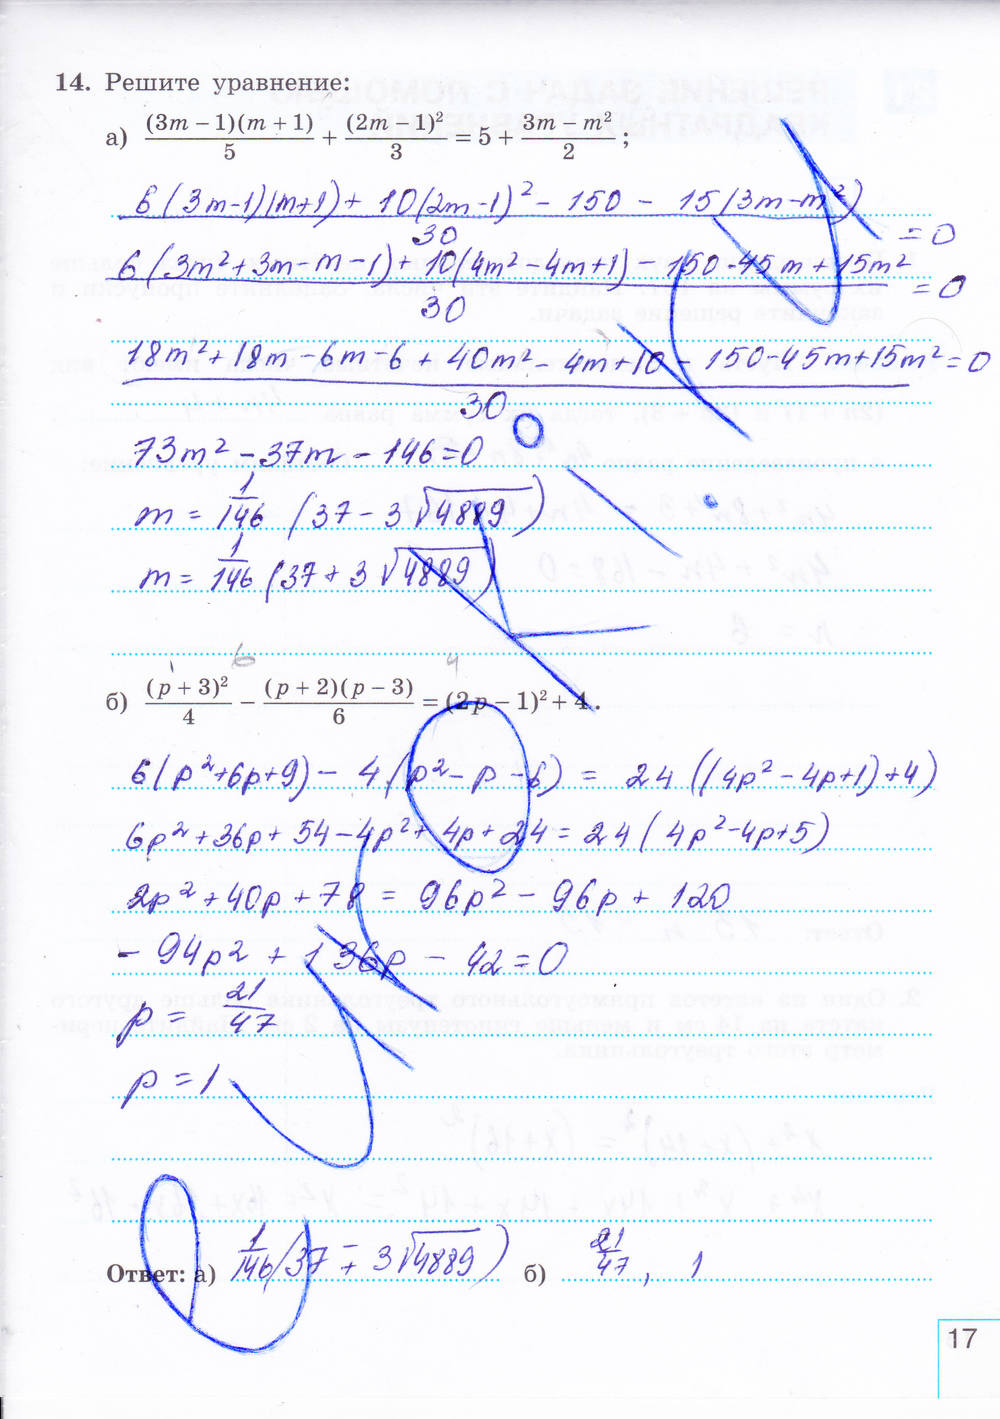 14. Решите уравнение:
а) (3m − 1)(m + 1)/5 + (2m − 1)²/3 = 5 + (3m − m²)/2 ;
6(3m-1)(m+1) + 10(2m-1)² - 150 - 15(3m-m²)
30
= 0
6(3m²+3m-m-1) + 10(4m²-4m+1) - 150-45m+15m²
30
= 0
18m²+18m-6m-6 + 40m² - 4m+10 150-45m+15m²=0
30
73m² - 37m - 146=0
m = 1/146 (37 - 3√4889)
m = 1/146 (37 + 3√4889)
б) (p + 3)²/4 − (p + 2)(p − 3)/6 = (2p − 1)² + 4.
6(p²+6p+9) - 4(p²-p-6) = 24((4p²-4p+1)+4)
6p²+36p+54-4p²+4p+24=24(4p²-4p+5)
2p²+40p+78 = 96p² - 96p + 120
- 94p² + 136p - 42=0
p = 21/47
p = 1
Ответ: а) 1/146 (37 ∓ 3√4889) б) 21/47, 1
17